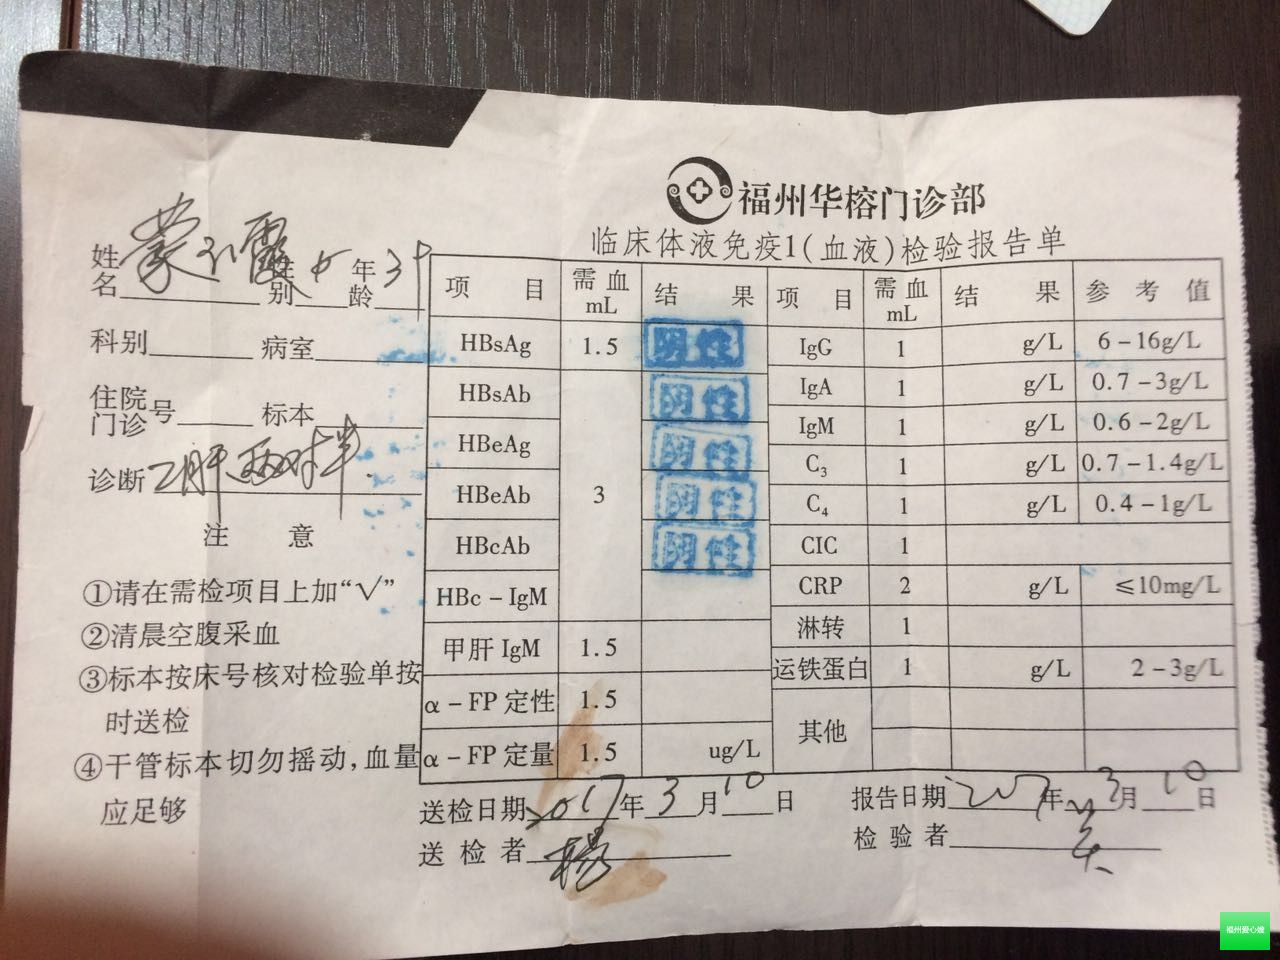 福州华榕门诊部
临床体液免疫1(血液)检验报告单
姓名 性别 年龄
科别 病室
住院门诊号 标本
诊断 乙肝两对半
注 意
①请在需检项目上加“√”
②清晨空腹采血
③标本按床号核对检验单按
时送检
④干管标本切勿摇动,血量
应足够
项 目 需血mL 结 果 项 目 需血mL 结 果 参 考 值
HBsAg 1.5 阴性 IgG 1 g/L 6-16g/L
HBsAb 阴性 IgA 1 g/L 0.7-3g/L
HBeAg 阴性 IgM 1 g/L 0.6-2g/L
HBeAb 3 阴性 C3 1 g/L 0.7-1.4g/L
HBcAb 阴性 C4 1 g/L 0.4-1g/L
HBc-IgM CIC 1
甲肝 IgM 1.5 CRP 2 g/L ≤10mg/L
α-FP 定性 1.5 淋转 1
α-FP 定量 1.5 ug/L 运铁蛋白 1 g/L 2-3g/L
其他
送检日期 2017年3月10日 报告日期 2017年3月10日
送检者 杨 检验者
福州爱心嫂